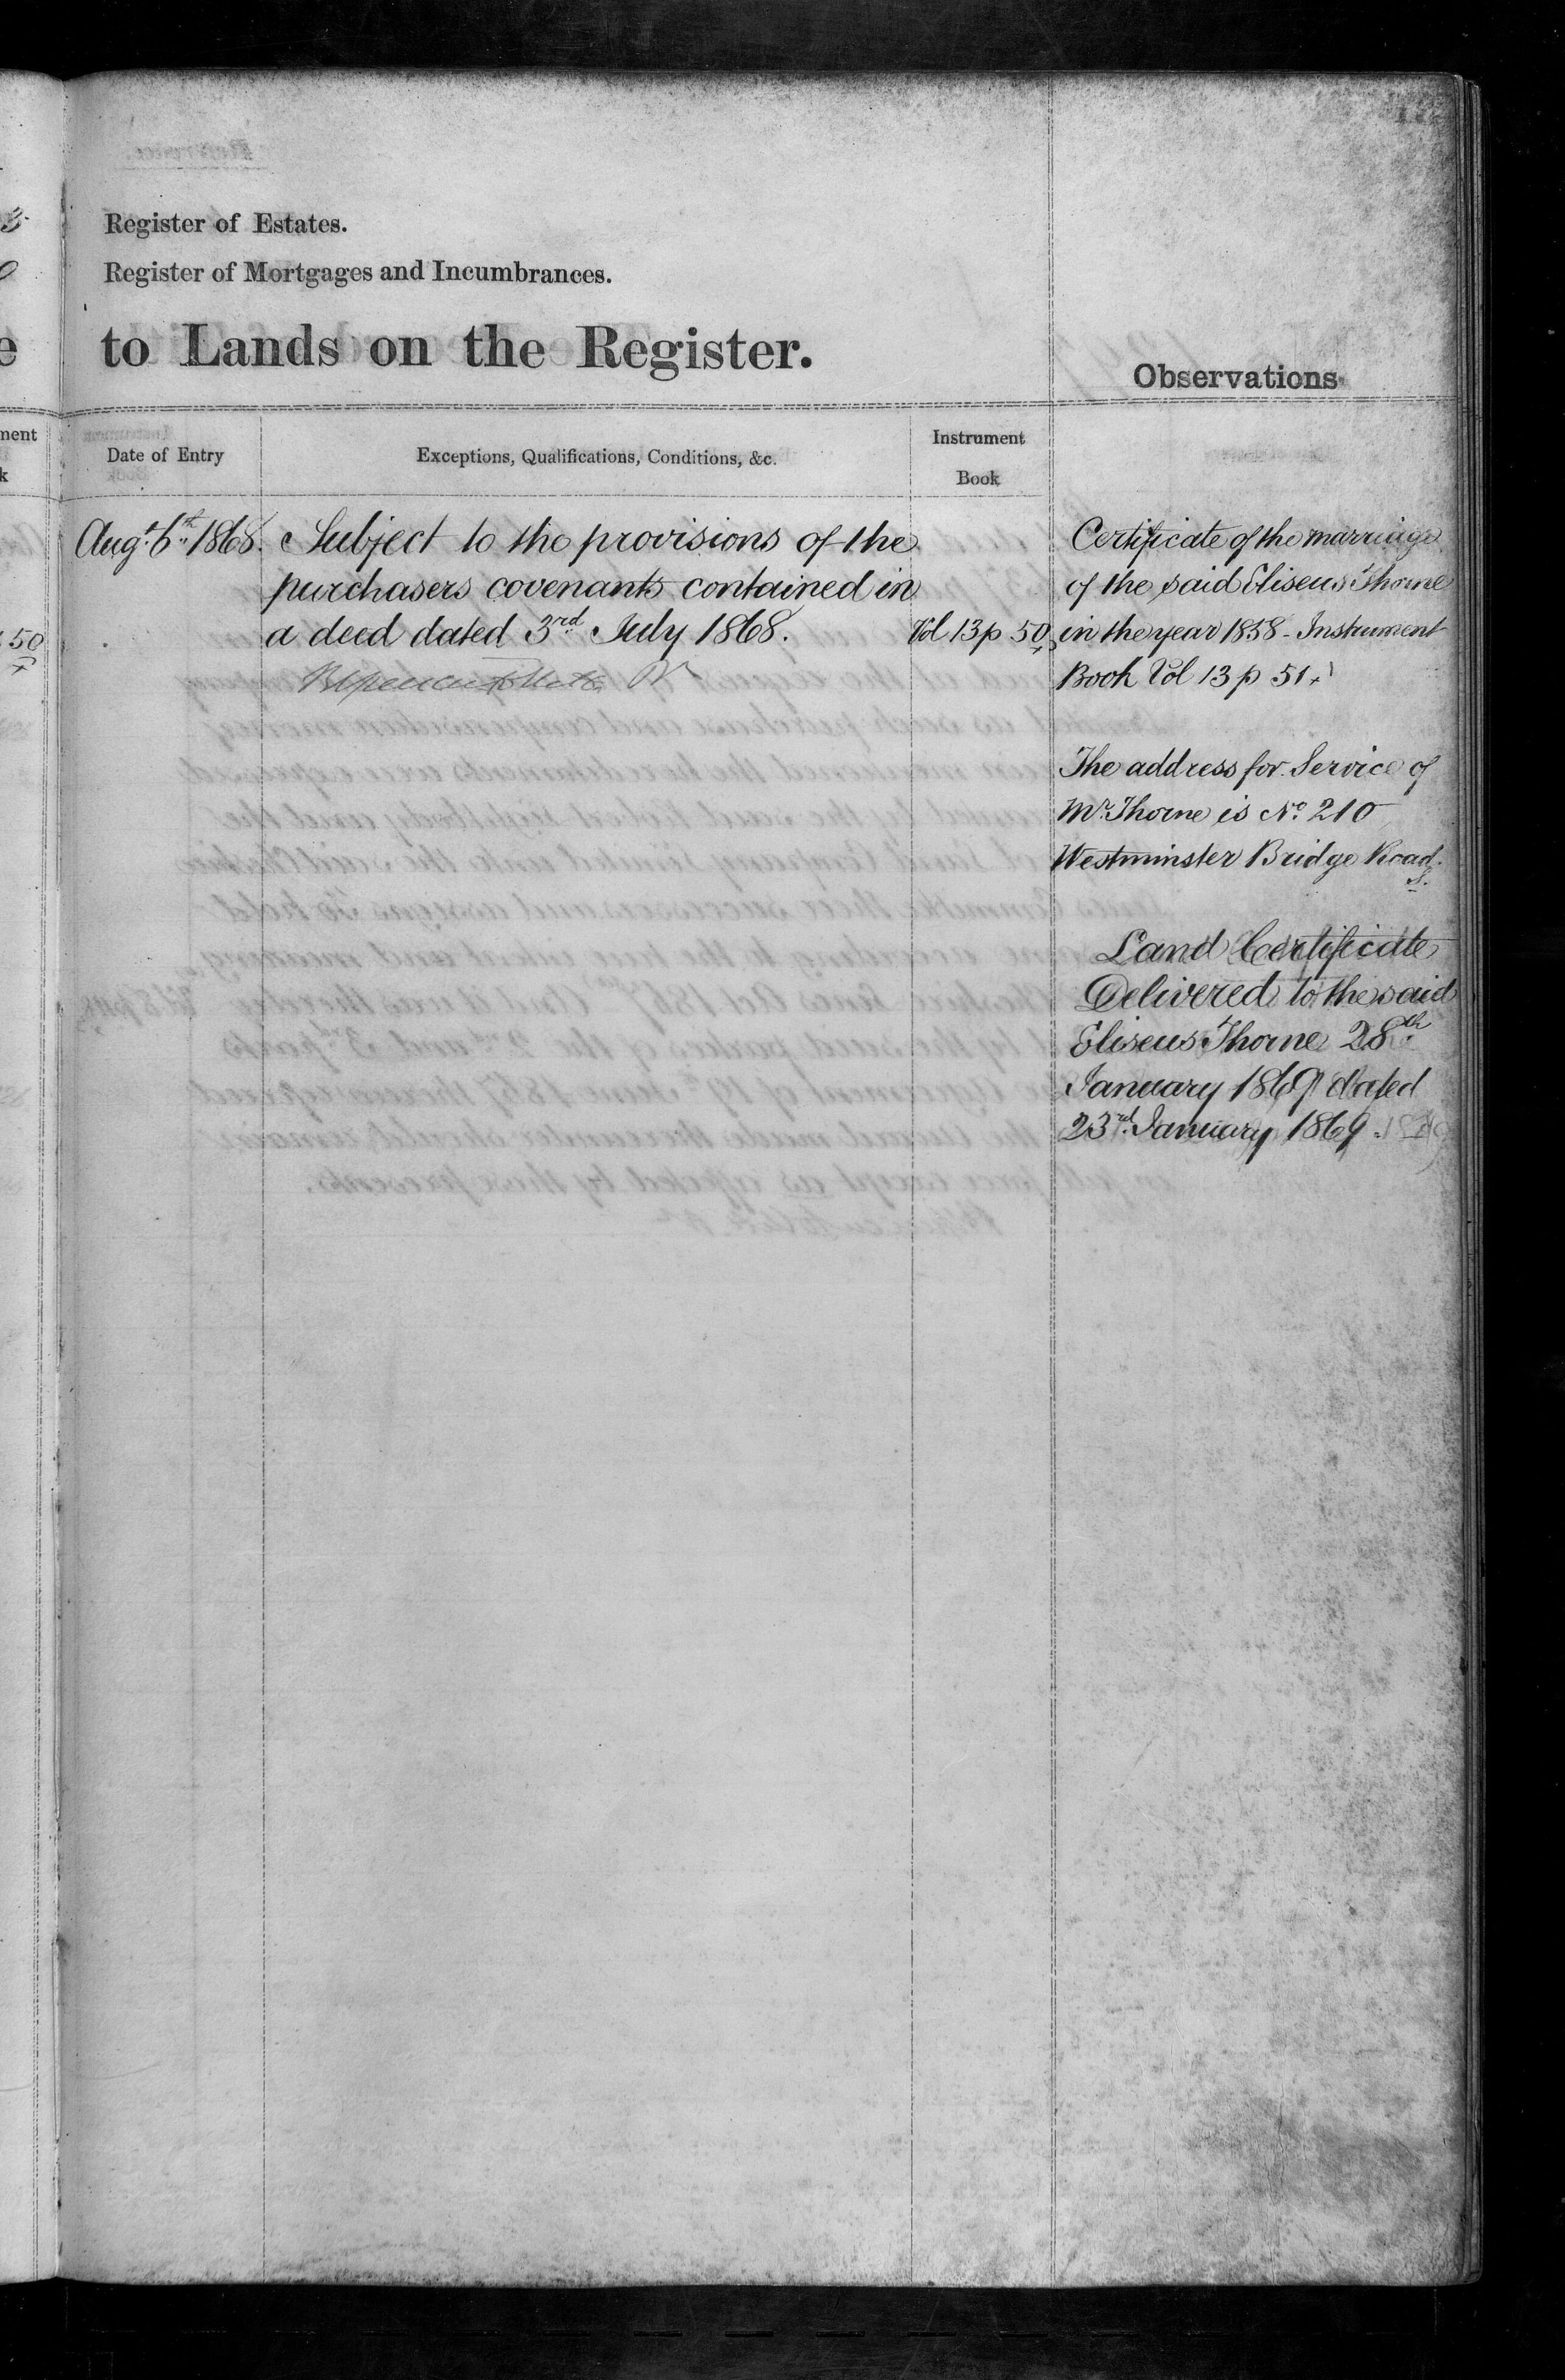 Register of Estates.
Register of Mortgages and Incumbrances.
to Lands on the Register.
Observations
Date of Entry
Exceptions, Qualifications, Conditions, &c.
Instrument
Book
Augt. 6th. 1868.
Subject to the provisions of the
purchasers covenants contained in
a deed dated 3rd July 1868.
Vol 13 p 50
Certificate of the marriage
of the said Eliseus Thorne
in the year 1858 - Instrument
Book Vol 13 p 51
The address for Service of
Mr. Thorne is No. 210
Westminster Bridge Road.
S.
Land Certificate
Delivered to the said
Eliseus Thorne 28th
January 1869 dated
23rd. January 1869.